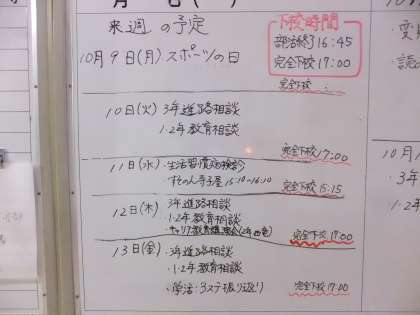 来週の予定
下校時間
部活終了16:45
完全下校17:00
10月9日(月)スポーツの日
完全下校
10日(火) 3年進路相談
・1・2年教育相談
完全下校17:00
11日(水)・生活習慣
・すその寺子屋15:10~16:10
完全下校15:15
12日(木) 3年進路相談
・1・2年教育相談
・キャリア教育講演会
完全下校17:00
13日(金)・3年進路相談
・1・2年教育相談
・学活:3ステ振り返り
完全下校17:00
10月1
・3年
・1